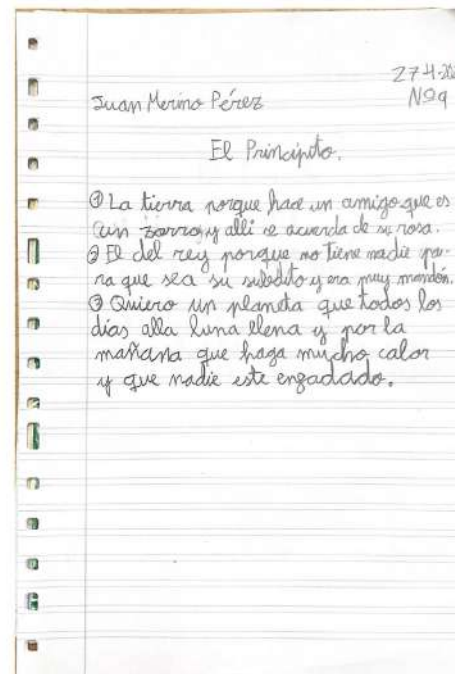 27-4-20
Juan Merino Pérez Nº9
El Principito.
① La tierra porque hace un amigo que es
un zorro, y alli se acuerda de su rosa.
② El del rey porque no tiene nadie pa-
ra que sea su subdito y era muy mandón.
③ Quiero un planeta que todos los
días alla luna llena y por la
mañana que haga mucho calor
y que nadie este engadado.